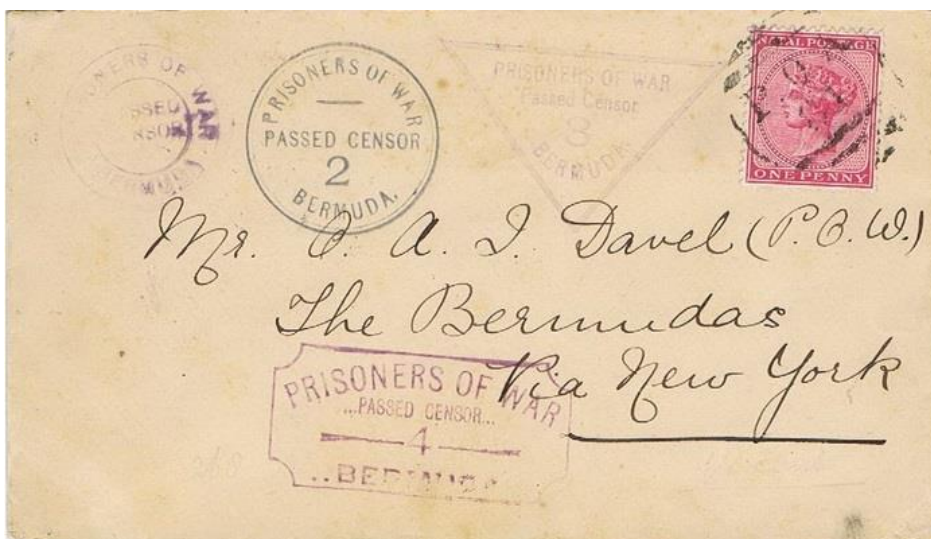 PRISONERS OF WAR
PASSED
CENSOR
BERMUDA
PRISONERS OF WAR
PASSED CENSOR
2
BERMUDA.
PRISONERS OF WAR
Passed Censor
3
BERMUDA.
NATAL POSTAGE
ONE PENNY
Mr. C. A. J. Davel (P.O.W.)
The Bermudas
Via New York
PRISONERS OF WAR
...PASSED CENSOR...
4
..BERMUDA